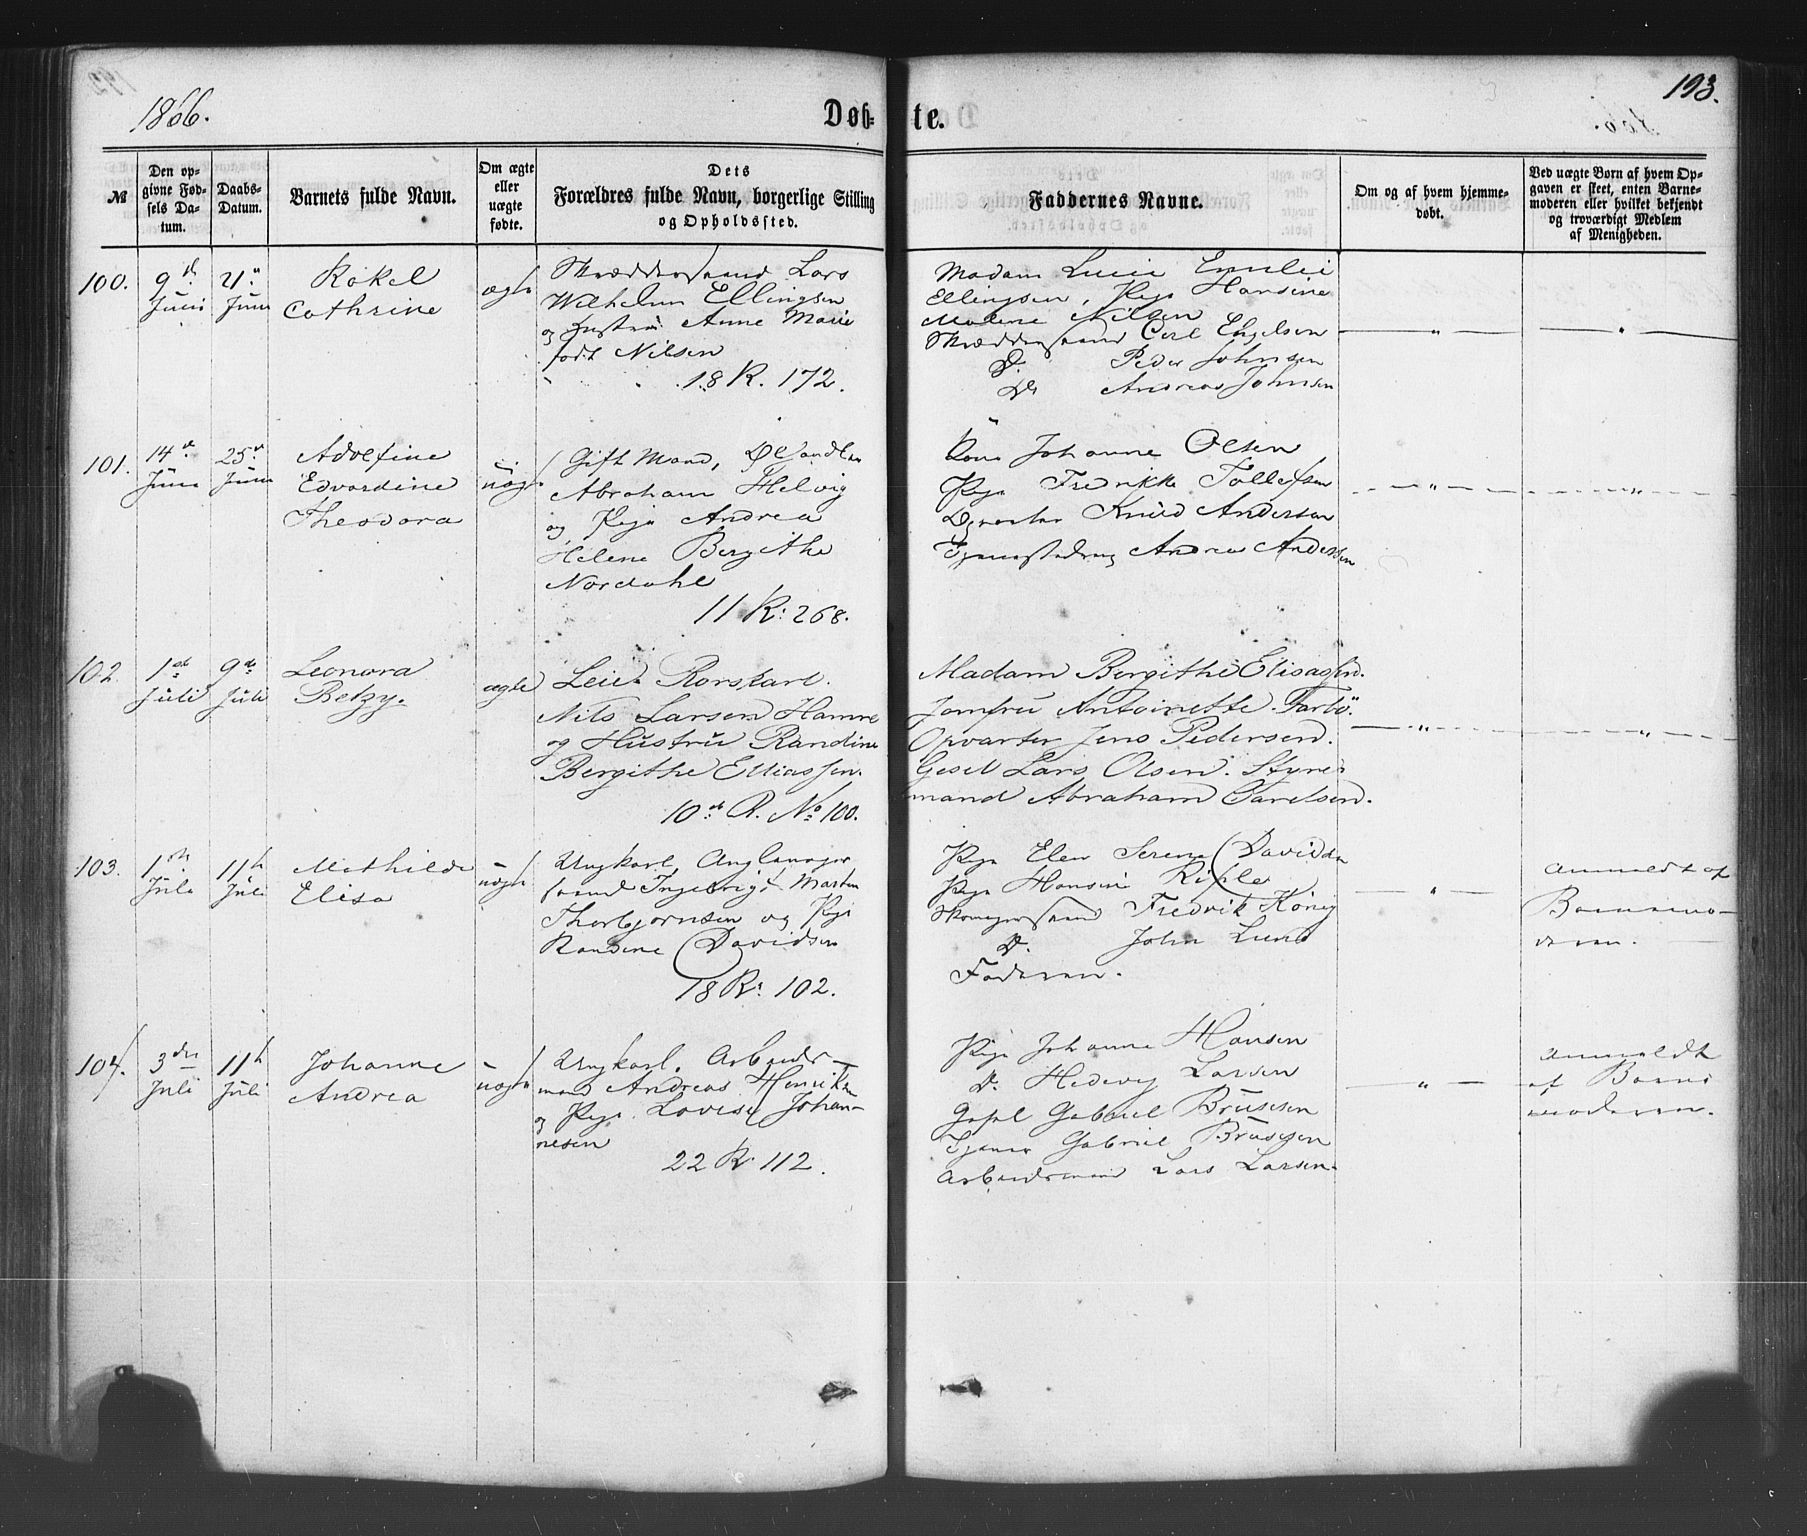 1866.
Døb-
te.
193.
№
Den op-
givne Fød-
sels Da-
tum.
Daabs-
Datum.
Barnets fulde Navn.
Om ægte
eller
uægte
fødte.
Dets
Forældres fulde Navn, borgerlige Stilling
og Opholdssted.
Faddernes Navne.
Om og af hvem hjemme-
døbt.
Ved uægte Børn af hvem Op-
gaven er skeet, enten Barne-
moderen eller hvilket bekjendt
og troværdigt Medlem
af Menigheden.
100.
9d
Juni
21
Juni
Rakel
Cathrine
ægte
Skræddersvend Lars
Wilhelm Ellingsen
og Hustru Anne Marie
født Nilsen
18 R. 172.
Madam Lucie Emilie
Ellingsen, Pige Hansine
Malene Nilsen
Skræddersvend Carl Engelsen
D. Peder Johnsen
Do Andreas Johnsen
101.
14d
Juni
25d
Juni
Adolfine
Edvardine
Theodora
uægte
Gift Mand,
Abraham Helvig
og Pige Andrea
Helene Bergithe
Nordahl
11 R: 268.
Kone Johanne Olsen
Pige Fredrikke Tollefsen
Knud Andersen
Tjenestedreng Andreas Anderssen
102
1st
Juli
9de
Juli
Leonora
Betzy.
ægte
Leier Rorskarl.
Nils Larsen Hamre
og Hustru Randine
Bergithe Elliassen.
10de R. No 100.
Madam Bergithe Eliassen.
Jomfru Antoinette
Opvarter Jens Pedersen.
Gesel Lars Olsen. Styre-
mand Abraham Carelsen.
103.
1ste
Juli
11te
Juli
Mathilde
Elisa
uægte
Ungkarl,
svend Ingebrigt Marten
Thorbjørnsen og Pige
Randine Davidsen
18 R: 102.
Pige Elen Serene Davidsen
Pige Hansine
Skomagersvend Fredrik König
D. John Lund
Faderen.
Anmeldt af
Barnemo-
deren.
104.
3die
Juli
11te
Juli
Johanne
Andrea
uægte
Ungkarl. Arbeids-
mand Andreas Henriksen
og Pige Lovise Johan-
nesen
22 R. 112.
Pige Johanne Hansen
D. Hedevig Larsen
Gesel Gabriel Brussen
Tjener Gabriel Brussen
Arbeidsmand Lars Larsen.
Anmeldt
af Barne
moderen.